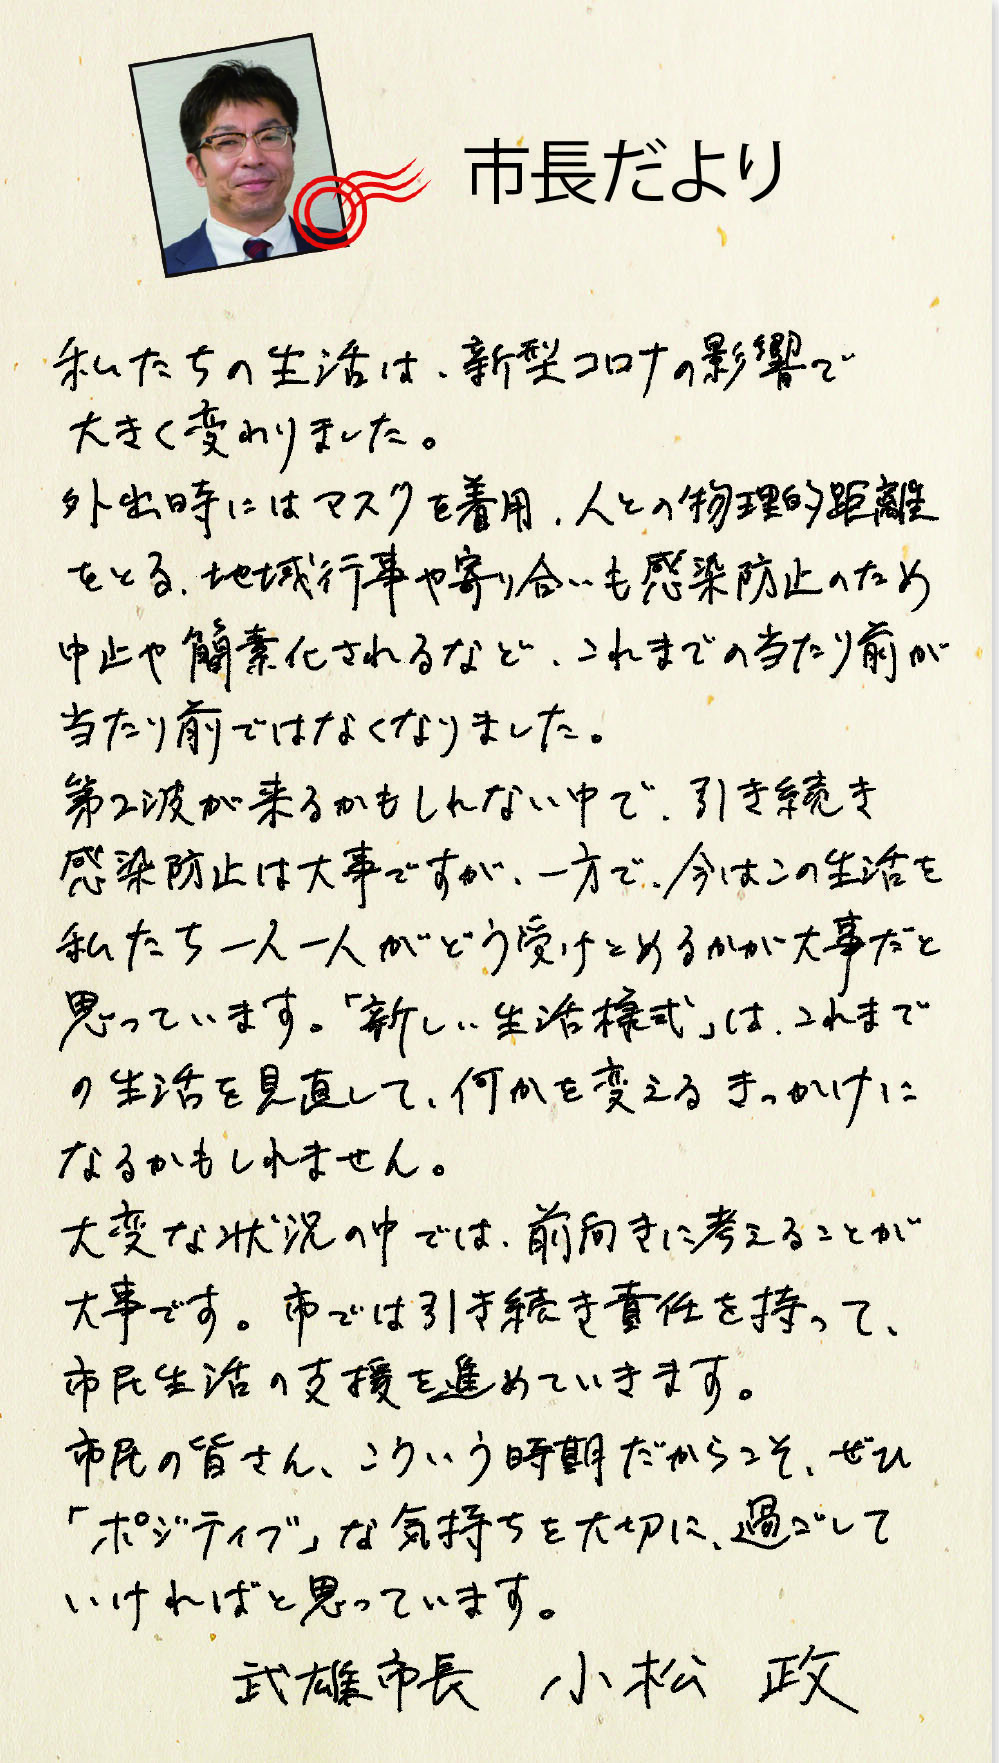 市長だより
私たちの生活は、新型コロナの影響で
大きく変わりました。
外出時にはマスクを着用、人との物理的距離
をとる、地域行事や寄り合いも感染防止のため
中止や簡素化されるなど、これまでの当たり前が
当たり前ではなくなりました。
第2波が来るかもしれない中で、引き続き
感染防止は大事ですが、一方で、今はこの生活を
私たち一人一人がどう受けとめるかが大事だと
思っています。「新しい生活様式」は、これまで
の生活を見直して、何かを変えるきっかけに
なるかもしれません。
大変な状況の中では、前向きに考えることが
大事です。市では引き続き責任を持って、
市民生活の支援を進めていきます。
市民の皆さん、こういう時期だからこそ、ぜひ
「ポジティブ」な気持ちを大切に、過ごして
いければと思っています。
武雄市長 小松 政